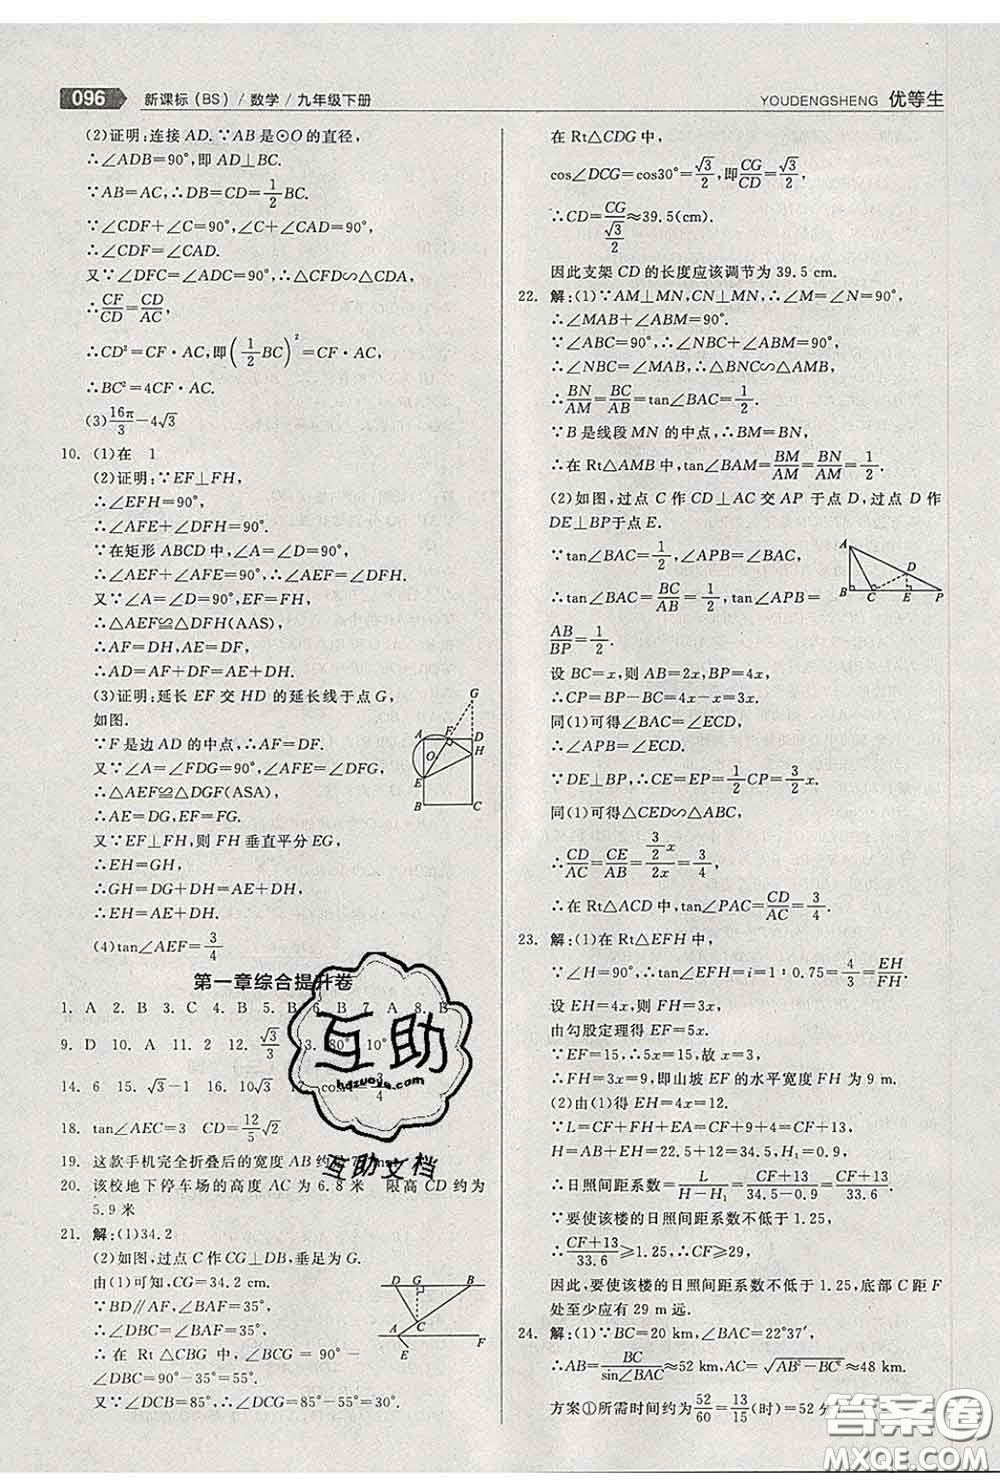 096 新课标(BS)/数学/九年级下册
YOUDENGSHENG 优等生
(2)证明:连接 AD.∵AB是⊙O的直径,
∴∠ADB=90°,即 AD⊥BC.
∵AB=AC,∴DB=CD=1/2BC.
∵∠CDF+∠C=90°,∠C+∠CAD=90°,
∴∠CDF=∠CAD.
又∵∠DFC=∠ADC=90°,∴△CFD∽△CDA,
∴CF/CD=CD/AC,
∴CD²=CF·AC,即(1/2BC)²=CF·AC,
∴BC²=4CF·AC.
(3)16π/3-4√3
10. (1)在 1
(2)证明:∵EF⊥FH,
∴∠EFH=90°,
∴∠AFE+∠DFH=90°.
∵在矩形 ABCD 中,∠A=∠D=90°,
∴∠AEF+∠AFE=90°,∴∠AEF=∠DFH.
又∵∠A=∠D=90°,EF=FH,
∴△AEF≌△DFH(AAS),
∴AF=DH,AE=DF,
∴AD=AF+DF=AE+DH.
(3)证明:延长 EF 交 HD 的延长线于点 G,
如图.
∵F 是边 AD 的中点,∴AF=DF.
又∵∠A=∠FDG=90°,∠AFE=∠DFG,
∴△AEF≌△DGF(ASA),
∴AE=DG,EF=FG.
又∵EF⊥FH,则 FH 垂直平分 EG,
∴EH=GH.
∴GH=DG+DH=AE+DH,
∴EH=AE+DH.
(4)tan∠AEF=3/4
G
A F D
O H
E
B C
第一章综合提升卷
1. A 2. B 3. C 4. B 5. B 6. B 7. A 8. B
9. D 10. A 11. 2 12. √3/3
14. 6 15. √3-1 16. 10√3
18. tan∠AEC=3 CD=12/5√2
19. 这款手机完全折叠后的宽度 AB 约
20. 该校地下停车场的高度 AC 为 6.8 米 限高 CD 约为
5.9 米
21. 解:(1)34.2
(2)如图,过点 C 作 CG⊥DB,垂足为 G.
由(1)可知,CG=34.2 cm.
∵BD∥AF,∠BAF=35°,
∴∠DBC=∠BAF=35°,
∴ 在 Rt △CBG 中,∠BCG = 90° -
∠DBC=90°-35°=55°.
又∵∠DCB=85°,∴∠DCG=85°-55°=30°.
D G B
C
A F
E
在 Rt△CDG 中,
cos∠DCG=cos30°=√3/2,即CG/CD=√3/2,
∴CD=CG/(√3/2)≈39.5(cm).
因此支架 CD 的长度应该调节为 39.5 cm.
22. 解:(1)∵AM⊥MN,CN⊥MN,∴∠M=∠N=90°,
∴∠MAB+∠ABM=90°.
∵∠ABC=90°,∴∠NBC+∠ABM=90°,
∴∠NBC=∠MAB,∴△NBC∽△AMB,
∴BN/AM=BC/AB=tan∠BAC=1/2.
∵B 是线段 MN 的中点,∴BM=BN,
∴在 Rt△AMB 中,tan∠BAM=BM/AM=BN/AM=1/2.
(2)如图,过点 C 作 CD⊥AC 交 AP 于点 D,过点 D 作
DE⊥BP于点 E.
∵tan∠BAC=1/2,∠APB=∠BAC,
∴tan∠BAC=BC/AB=1/2,tan∠APB=
AB/BP=1/2.
A
D
B C E P
设 BC=x,则 AB=2x,BP=4x,
∴CP=BP-BC=4x-x=3x.
同(1)可得∠BAC=∠ECD,
∴∠APB=∠ECD.
∵DE⊥BP,∴CE=EP=1/2CP=3/2x.
同(1)可得△CED∽△ABC,
∴CD/AC=CE/AB=(3/2x)/2x=3/4,
∴在 Rt△ACD 中,tan∠PAC=CD/AC=3/4.
23. 解:(1)在 Rt△EFH 中,
∵∠H=90°,∴tan∠EFH=i=1∶0.75=4/3=EH/FH.
设 EH=4x,则 FH=3x,
由勾股定理得 EF=5x.
∵EF=15,∴5x=15,故 x=3,
∴FH=3x=9,即山坡 EF 的水平宽度 FH 为 9 m.
(2)由(1)得 EH=4x=12.
∵L=CF+FH+EA=CF+9+4=CF+13,
∴日照间距系数=L/(H-H₁)=(CF+13)/(34.5-0.9)=(CF+13)/33.6.
∵要使该楼的日照间距系数不低于 1.25,
∴(CF+13)/33.6≥1.25,∴CF≥29.
因此,要使该楼的日照间距系数不低于 1.25,底部 C 距 F
处至少应有 29 m 远.
24. 解:(1)∵BC=20 km,∠BAC=22°37′,
∴AB=BC/sin∠BAC≈52 km,AC=√(AB²-BC²)≈48 km.
方案①所需时间约为52/60=13/15(时)=52 分
互助
hdzuoye.com
互助文档
答案圈
MXQE.COM